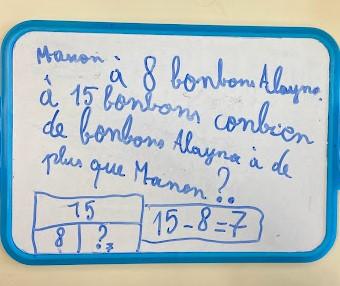 Manon à 8 bonbons Alayna
à 15 bonbons conbien
de bonbons Alayna à de
plus que Manon ?
15
8 ? 7
15-8=7